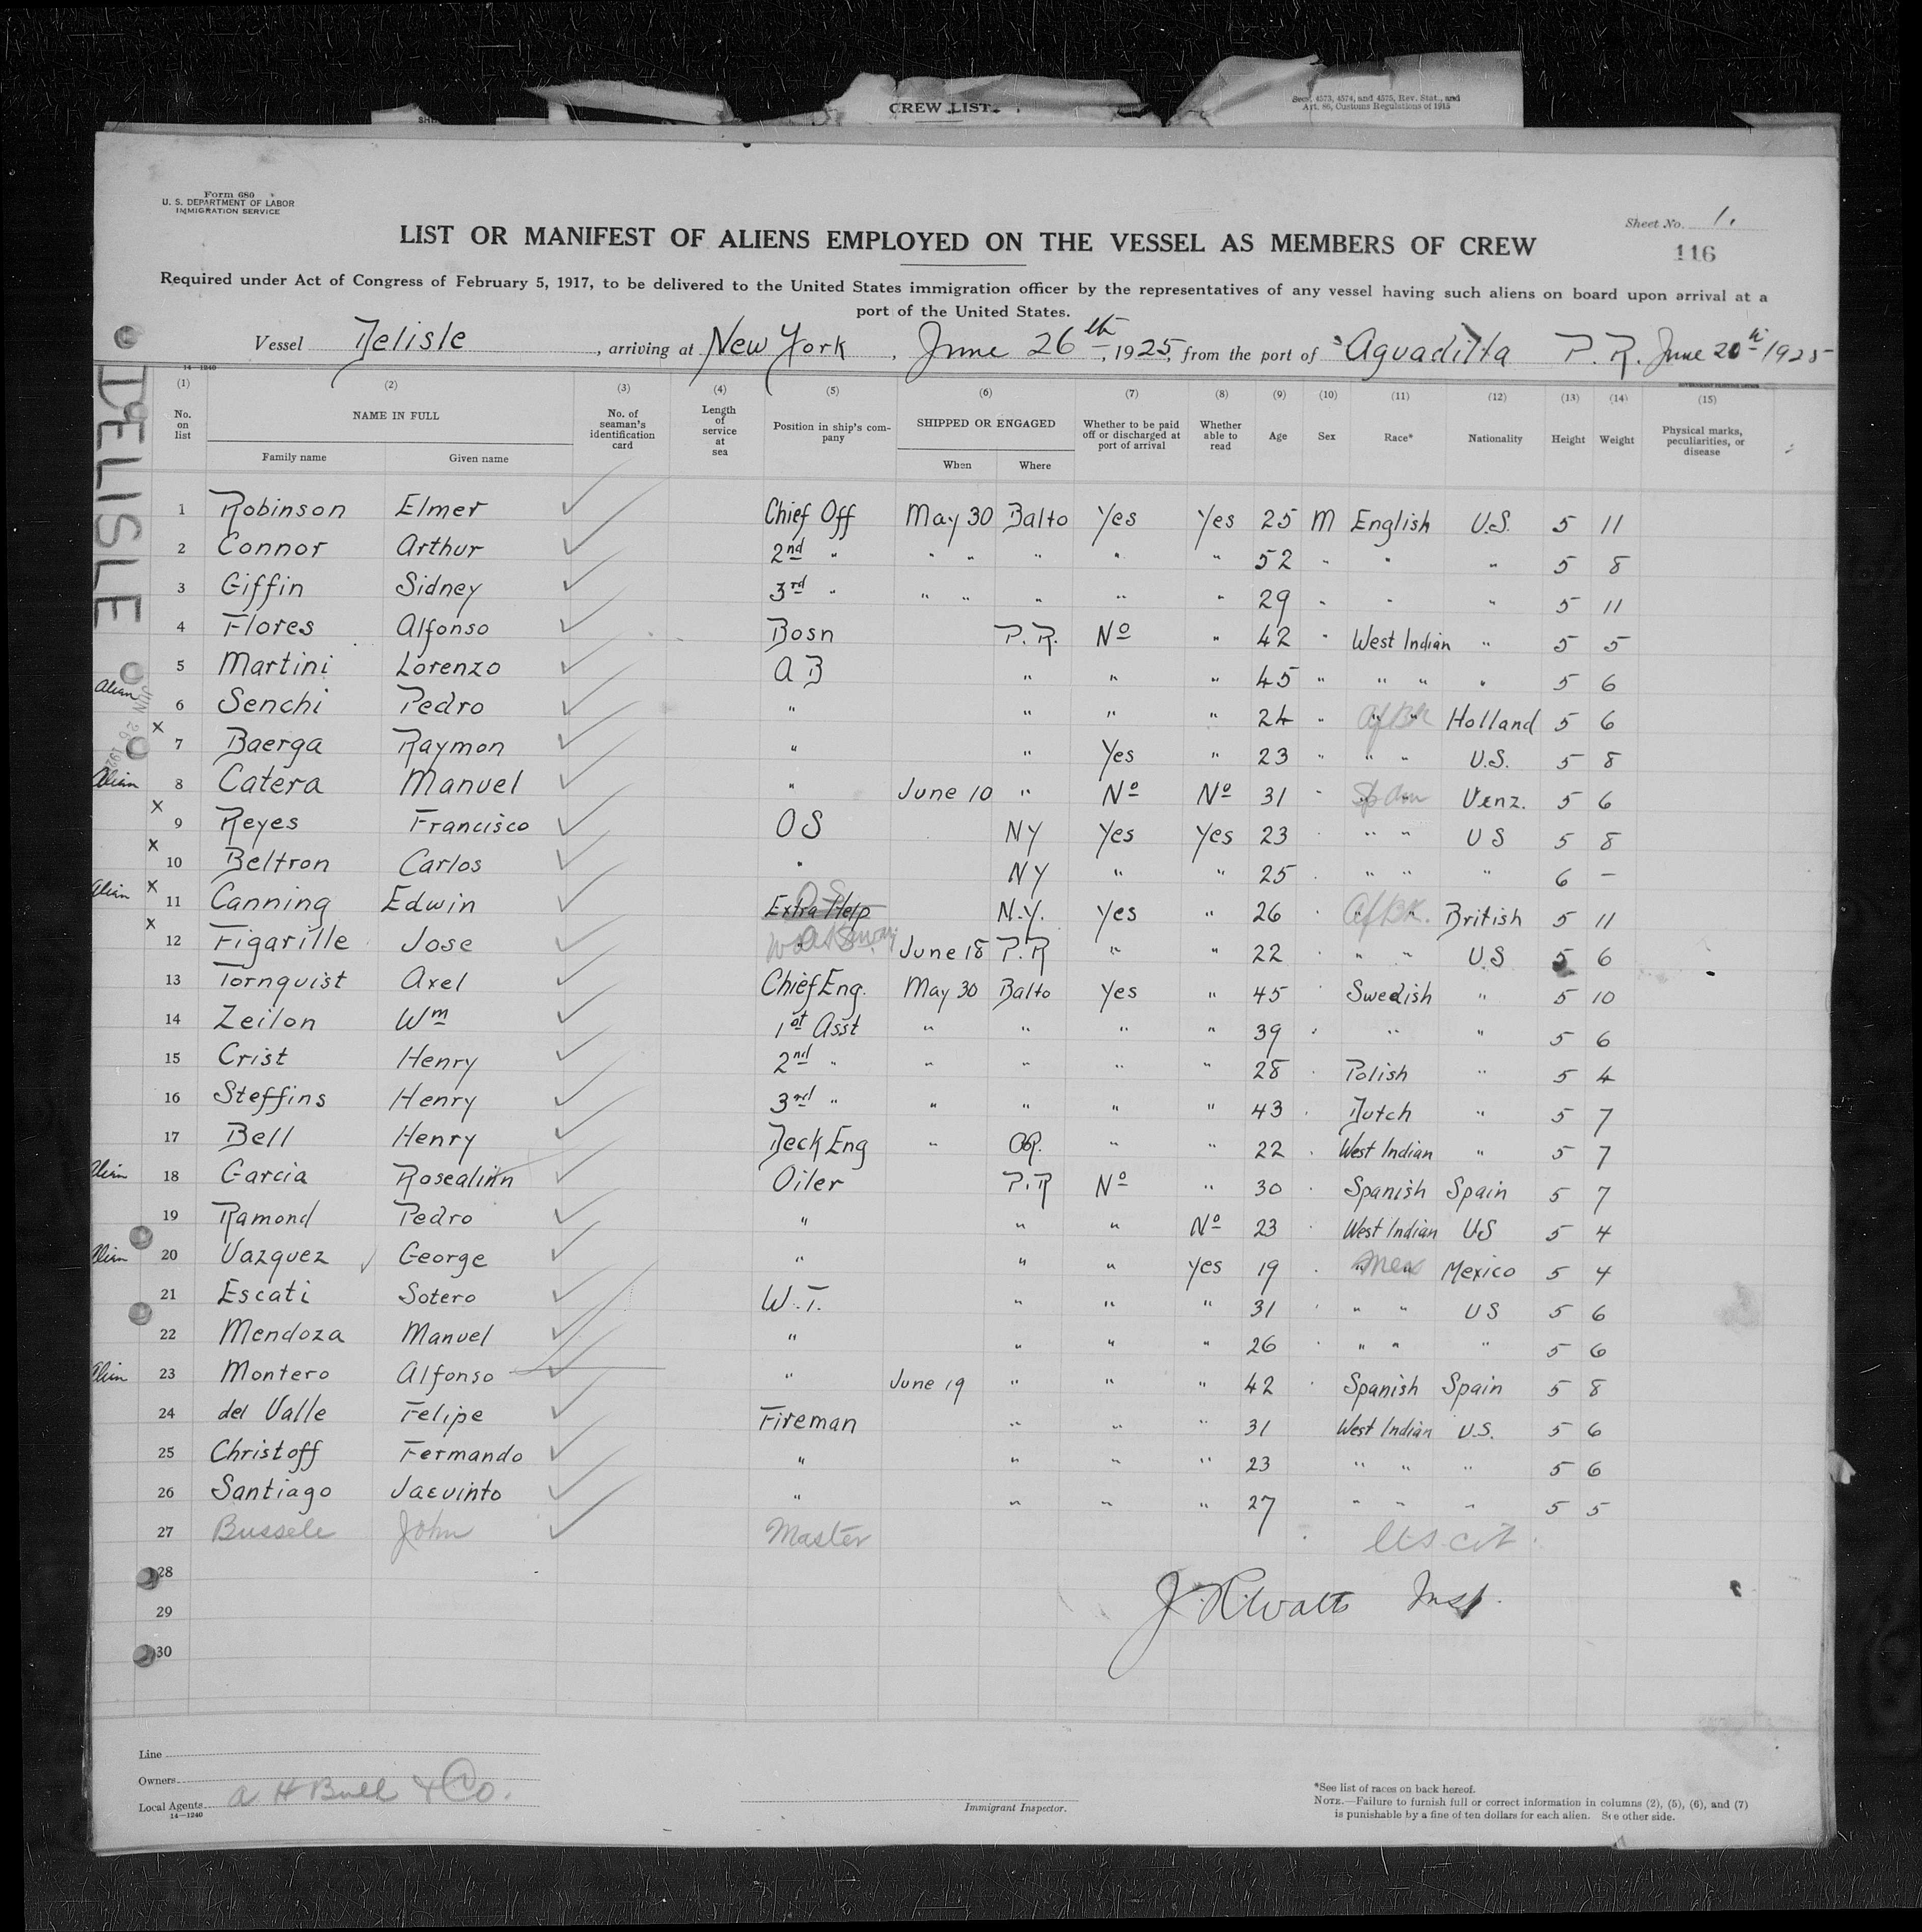 CREW LIST.
Secs. 4573, 4574, and 4575, Rev. Stat., and
Art. 86, Customs Regulations of 1915
Form 680
U. S. DEPARTMENT OF LABOR
IMMIGRATION SERVICE
Sheet No. 1.
116
LIST OR MANIFEST OF ALIENS EMPLOYED ON THE VESSEL AS MEMBERS OF CREW
Required under Act of Congress of February 5, 1917, to be delivered to the United States immigration officer by the representatives of any vessel having such aliens on board upon arrival at a
port of the United States.
Vessel Delisle, arriving at New York, June 26th, 1925, from the port of Aguadilla P. R. June 20th 1925
14-1240
DELISLE
(1) (2) (3) (4) (5) (6) (7) (8) (9) (10) (11) (12) (13) (14) (15)
No. on list NAME IN FULL Family name Given name No. of seaman's identification card Length of service at sea Position in ship's company SHIPPED OR ENGAGED When Where Whether to be paid off or discharged at port of arrival Whether able to read Age Sex Race* Nationality Height Weight Physical marks, peculiarities, or disease
1 Robinson Elmer Chief Off May 30 Balto Yes Yes 25 M English U.S. 5 11
2 Connor Arthur 2nd " " " " " " 52 " " " 5 8
3 Giffin Sidney 3rd " " " " " " 29 " " " 5 11
4 Flores Alfonso Bosn P.R. No " 42 " West Indian " 5 5
5 Martini Lorenzo A B " " " 45 " " " " 5 6
Alien 6 Senchi Pedro " " " " 24 " " " Af Bk Holland 5 6
x 7 Baerga Raymon " " Yes " 23 " " " U.S. 5 8
Alien 8 Catera Manuel " June 10 " No No 31 " " " Sp Am Venz. 5 6
x 9 Reyes Francisco OS NY Yes Yes 23 " " " U S 5 8
x 10 Beltron Carlos " NY " " 25 " " " " 6 -
Alien x 11 Canning Edwin Extra Help OS N.Y. Yes " 26 " " " Af Bk. British 5 11
x 12 Figarille Jose June 18 P.R " " 22 " " " U.S 5 6
13 Tornquist Axel Chief Eng. May 30 Balto Yes " 45 " Swedish " 5 10
14 Zeilon Wm 1st Asst " " " " 39 " " " 5 6
15 Crist Henry 2nd " " " " " 28 " Polish " 5 4
16 Steffins Henry 3rd " " " " " 43 " Dutch " 5 7
17 Bell Henry Deck Eng " " " 22 " West Indian " 5 7
Alien 18 Garcia Rosealinn Oiler P.R No " 30 " Spanish Spain 5 7
19 Ramond Pedro " " " No 23 " West Indian US 5 4
Alien 20 Vazquez George " " " Yes 19 " " " Mex Mexico 5 4
21 Escati Sotero W.T. " " " 31 " " " US 5 6
22 Mendoza Manuel " " " " 26 " " " " 5 6
Alien 23 Montero Alfonso " June 19 " " " 42 " Spanish Spain 5 8
24 del Valle Felipe Fireman " " " 31 West Indian U.S. 5 6
25 Christoff Fermando " " " " 23 " " " 5 6
26 Santiago Jacvinto " " " " 27 " " " 5 5
27 Bussele John Master U.S. cit.
28
29
30
Insp.
Line
Owners
Local Agents A H Bull & Co.
14-1240
Immigrant Inspector.
*See list of races on back hereof.
NOTE.—Failure to furnish full or correct information in columns (2), (5), (6), and (7)
is punishable by a fine of ten dollars for each alien. See other side.